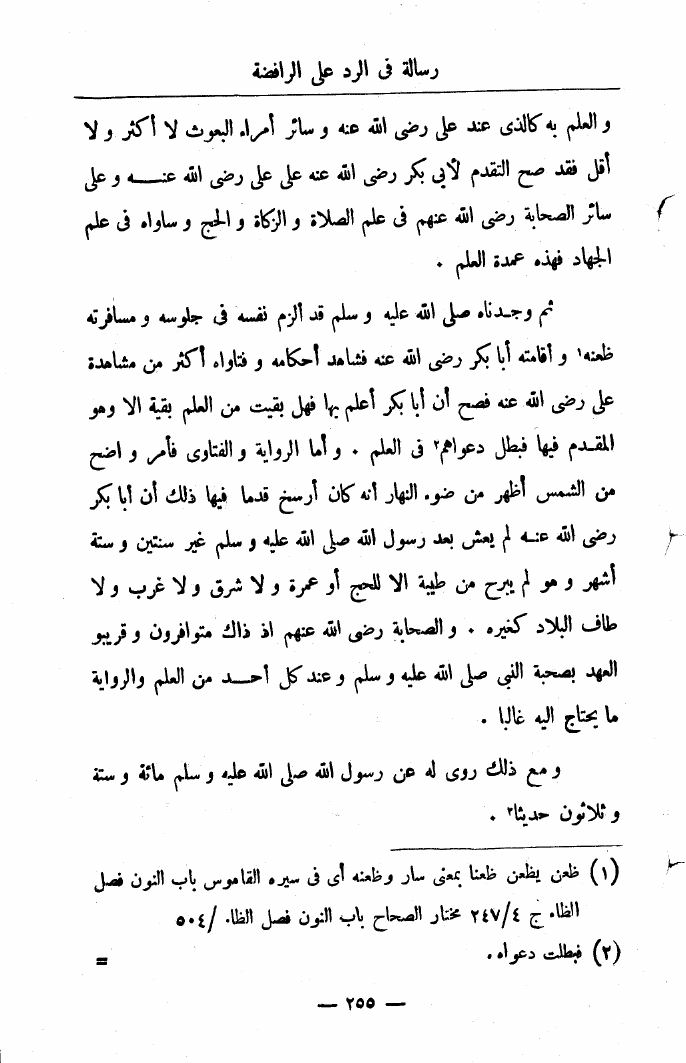 رسالة فى الرد على الرافضة
و العلم به كالذى عند على رضى الله عنه و سائر أمراء البعوث لا أكثر و لا
أقل فقد صح التقدم لأبى بكر رضى الله عنه على على رضى الله عنـــه و على
سائر الصحابة رضى الله عنهم فى علم الصلاة و الزكاة و الحج و ساواه فى علم
الجهاد فهذه عمدة العلم .
ثم وجـدناه صلى الله عليه و سلم قد ألزم نفسه فى جلوسه و مسافرته
ظعنه١ و أقامته أبا بكر رضى الله عنه فشاهد أحكامه و فتاواه أكثر من مشاهدة
على رضى الله عنه فصح أن أبا بكر أعلم بها فهل بقيت من العلم بقية الا وهو
المقـدم فيها فبطل دعواهم٢ فى العلم . و أما الرواية و الفتاوى فأمر و اضح
من الشمس أظهر من ضوء النهار أنه كان أرسخ قدما فيها ذلك أن أبا بكر
رضى الله عنـه لم يعش بعد رسول الله صلى الله عليه و سلم غير سنتين و ستة
أشهر و هو لم يبرح من طيبة الا للحج أو عمرة و لا شرق و لا غرب و لا
طاف البلاد كغيره . و الصحابة رضى الله عنهم اذ ذاك متوافرون و قريبو
العهد بصحبة النبى صلى الله عليه و سلم و عند كل أحـــد من العلم والرواية
ما يحتاج اليه غالبا .
و مع ذلك روى له عن رسول الله صلى الله عليه و سلم مائة و ستة
و ثلاثون حديثا٣ .
(١) ظعن يظعن ظعنا بمعنى سار و ظعنه أى فى سيره القاموس باب النون فصل
الظاء ج ٢٤٧/٤ مختار الصحاح باب النون فصل الظاء /٥٠٤
(٢) فبطلت دعواه .
=
— ٢٥٥ —